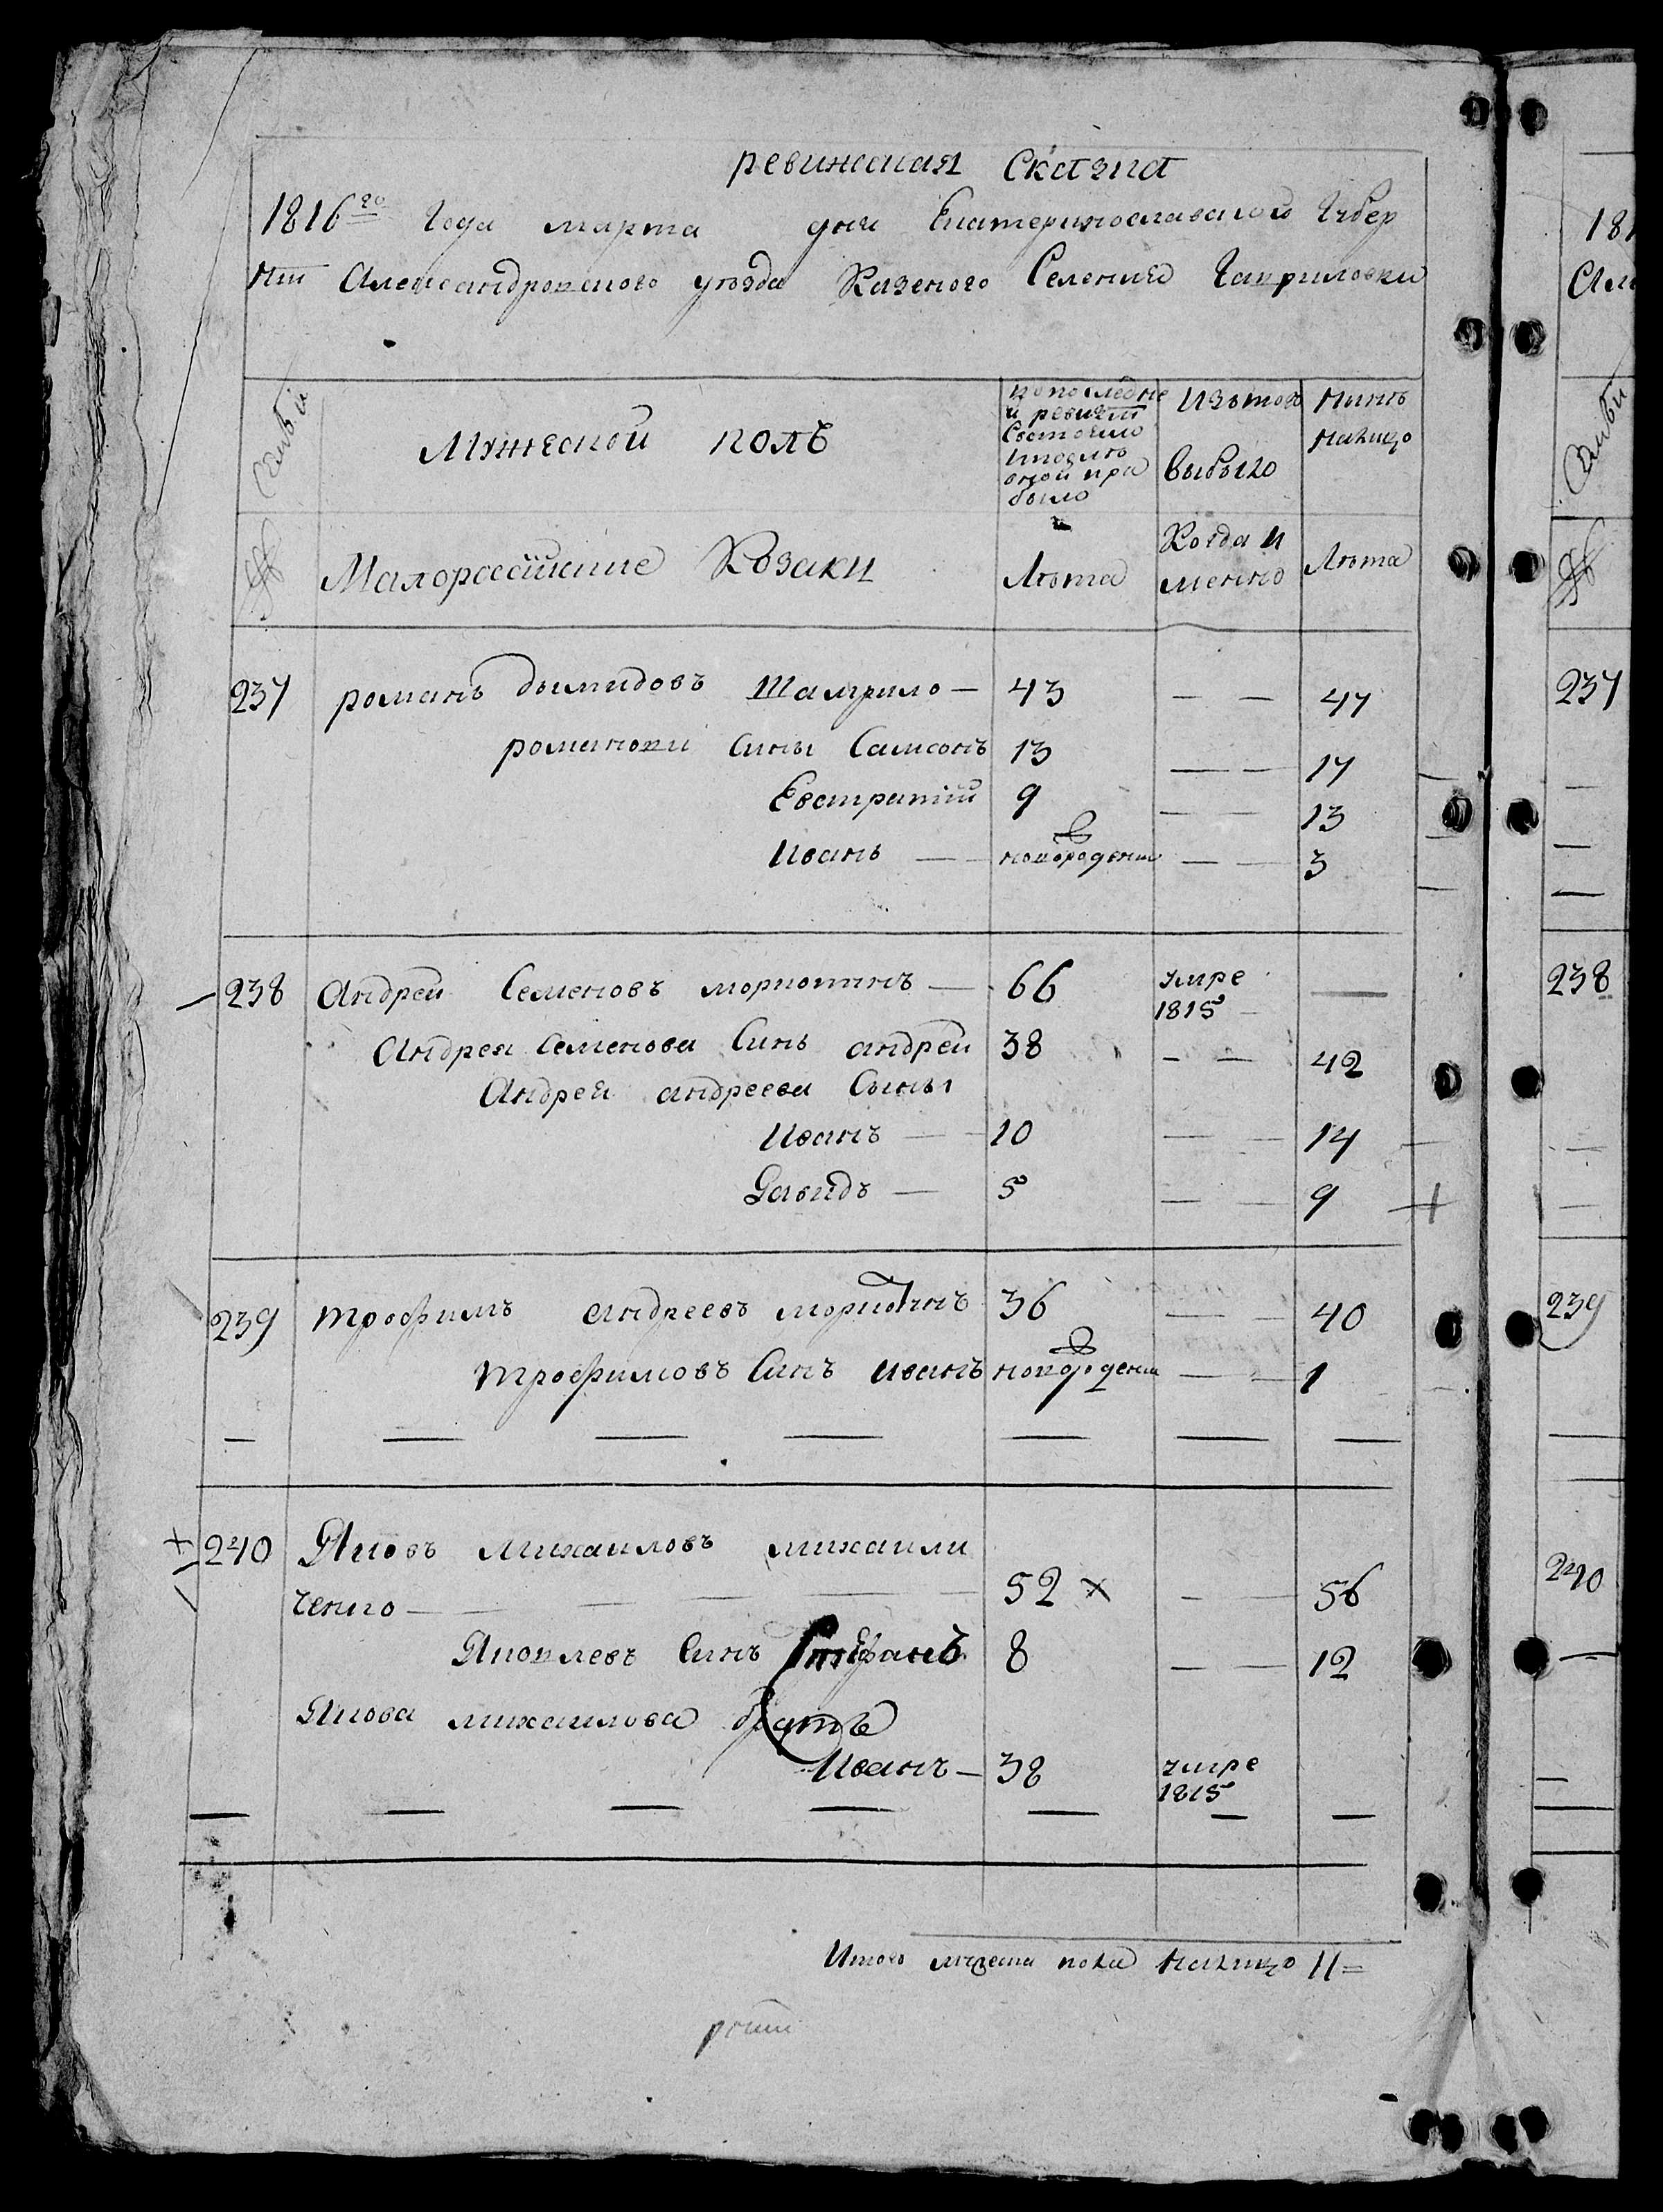 ревижская Сказка
1816го Года марта дня Екатеринославской Губер
нии Александровского уѣзда Казеного Селения Гавриловки
Семьи
Мужеской полъ
По последне
й ревизии
Состояло
и после
оной при
было
Изъ того
выбыло
Нынѣ
налицо
Семьи
№
Малороссийские Козаки
Лѣта
Когда и
менно
Лѣта
237 романъ дымидовъ Шамрило — 43 — — 47
романови Сины Самсонъ 13 — — 17
Евстратий 9 — — 13
Иванъ — — новорожден — — 3
238 Андрей Семеновъ — 66 умре —
1815
Андрея Семенова Синъ андрей 38 — — 42
Андрея андреева Сыны
Иванъ — — 10 — — 14
Давидъ — 5 — — 9
239 трофимъ андреевъ 36 — — 40
трофимовъ Синъ иванъ новорожден — — 1
— — — — — — —
240 Яковъ Михаиловъ михаили
ченко — 52 х — — 56
Яковлевъ Синъ Стефанъ 8 — — 12
Якова михаилова братъ
Иванъ — 38 умре
1815
— — — — — — —
Итого мужеска пола налицо 11=
181
237
238
239
240